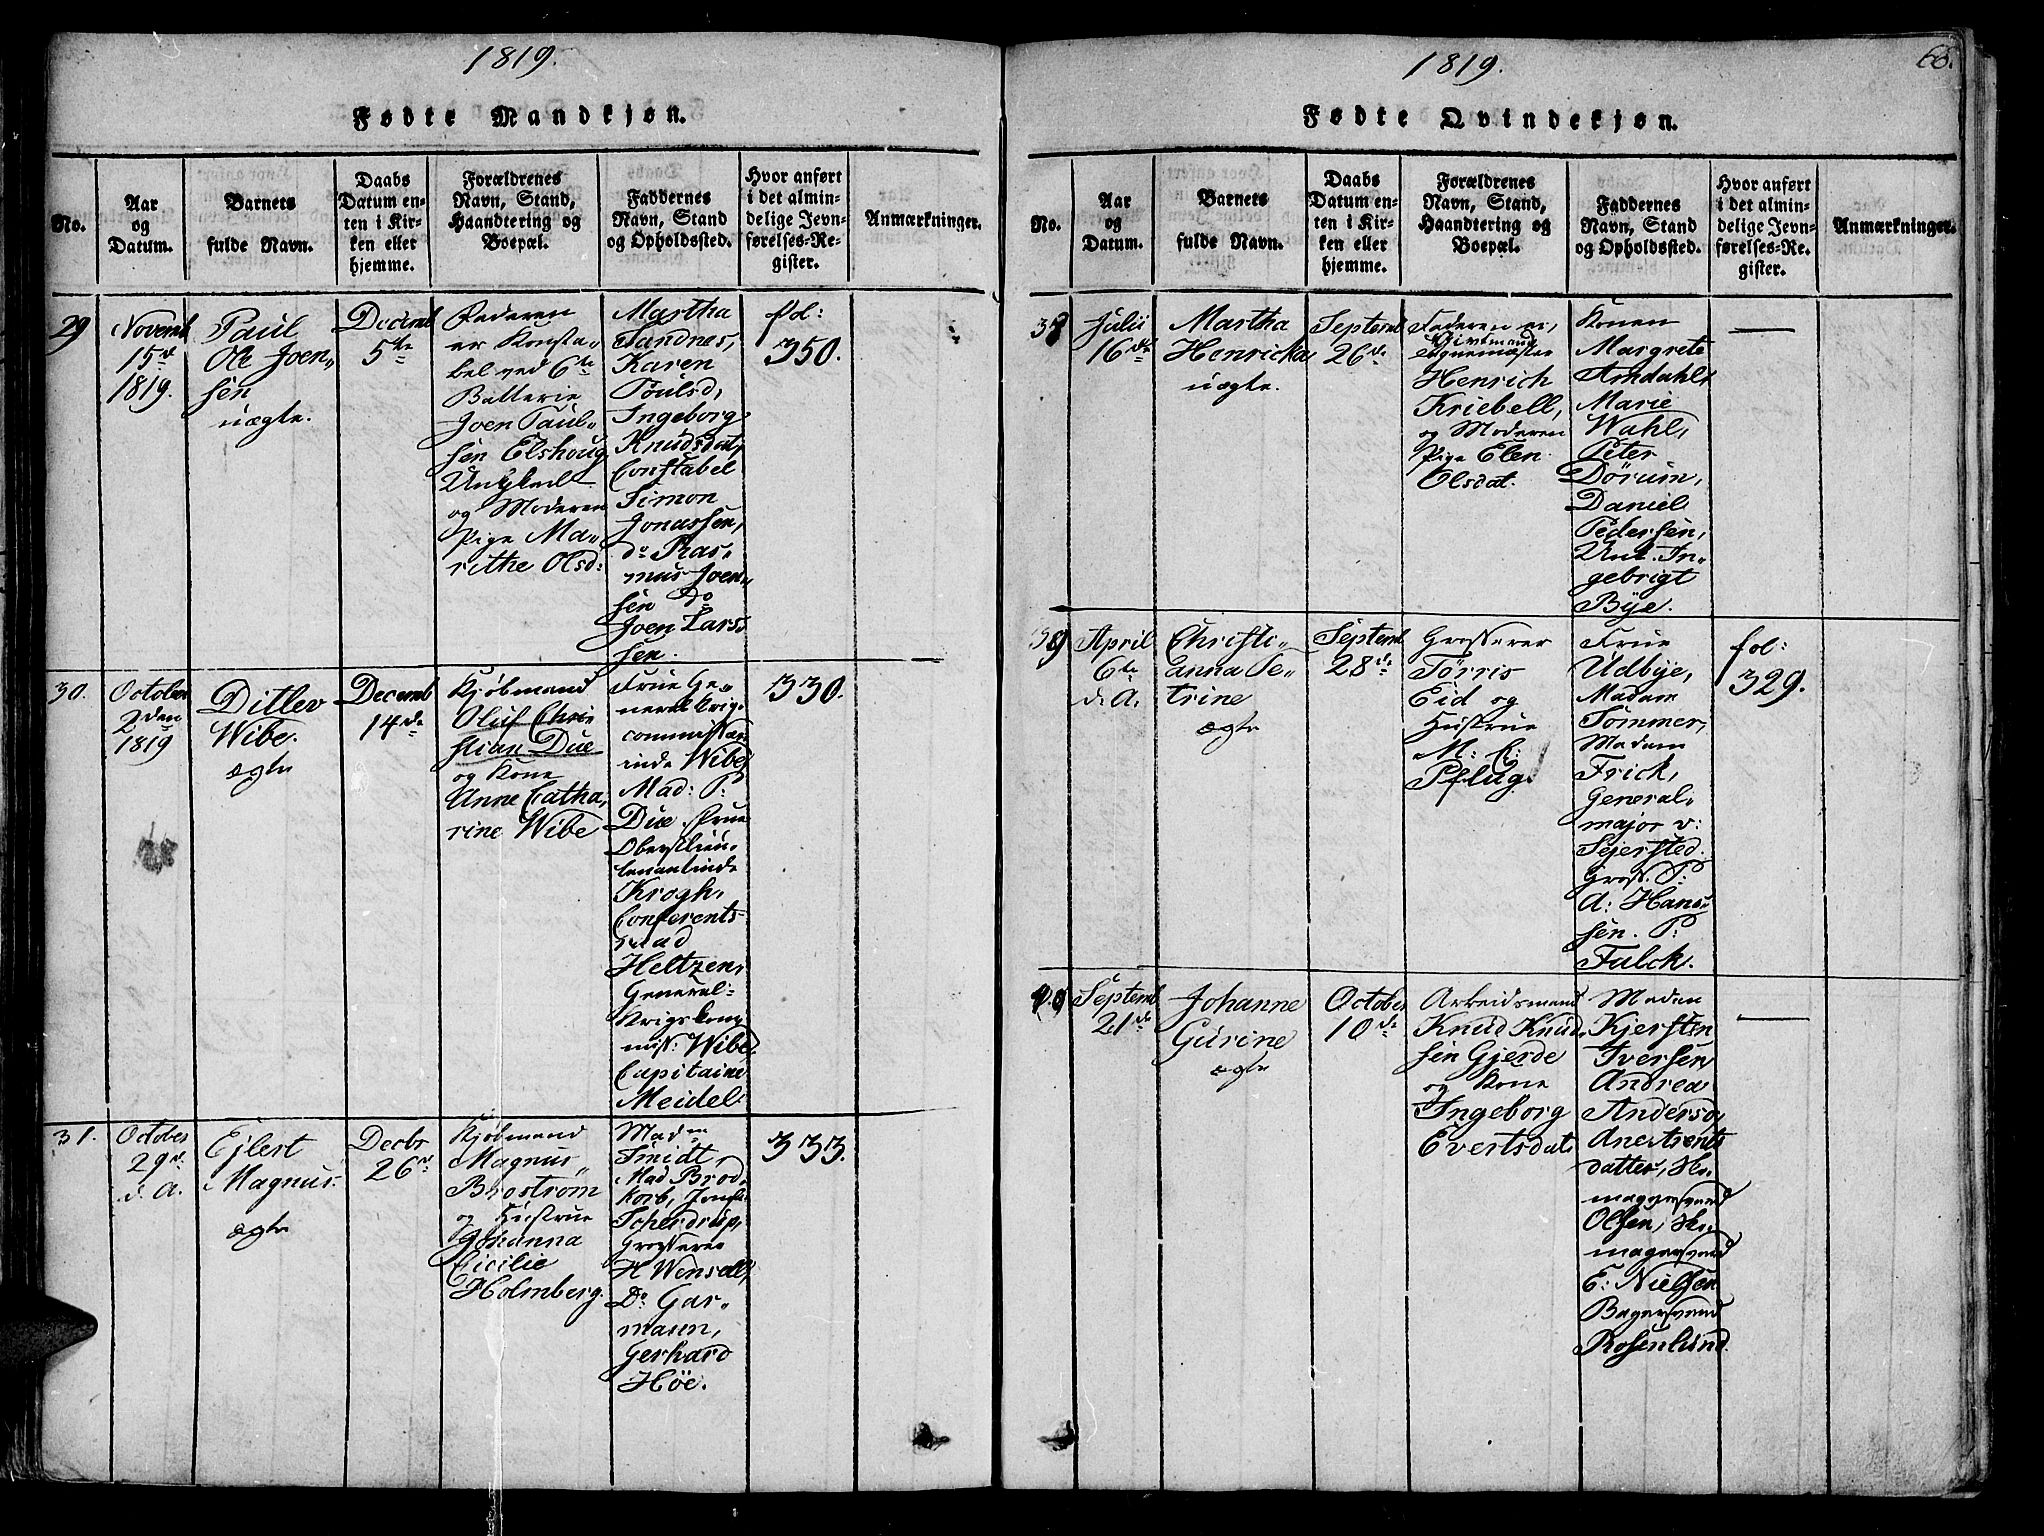 1819.
Fødte Mandkjøn.
No.
Aar
og
Datum.
Barnets
fulde Navn.
Daabs
Datum en-
ten i Kir-
ken eller
hjemme.
Forældrenes
Navn, Stand,
Haandtering og
Boepæl.
Faddernes
Navn, Stand
og Opholdssted.
Hvor anført
i det almin-
delige Jevn-
førelses-Re-
gister.
Anmærkninger.
29
Novemb
15d
1819.
Paul
Ole Joen„
sen
uægte.
Decemb
5te
Faderen
er Konsta„
bel ved 6te
Batterie
Joen Paul„
sen Elshoug
Ungkarl
og Moderen
Pige Ma„
rithe Olsd:
Martha
Sandnes,
Karen
Poulsd,
Ingeborg
Knudsdat,
Constabel
Simon
Jonassen,
do Ras„
mus Joen„
sen do
Joen Lars
sen.
fol:
350.
30.
October
2den
1819
Ditlev
Wibe.
ægte
Decemb
14de
Kjøbmand
Oluf Chri
stian Due
og Kone
Anne Catha„
rine Wibe
Frue Ge„
neral Krigs
commissær
inde Wibe,
Mad: P:
Due. Frue
Oberstlieu„
tenantinde
Krogh,
Conferents-
raad
Heltzen,
General-
Krigskom
miss: Wibe,
Capitaine
Meidel.
330.
31.
October
29d.
d. A.
Ejlert
Magnus.
ægte
Decbr
26d.
Kjøbmand
Magnus
Brostrøm
og Hustrue
Johanna
Cicilie
Holmberg.
Madm
Smidt,
Mad Brod„
korb, Jomfr.
Scherdrup,
Grosserer
H Wensell,
Do: Gar„
maken,
Gerhard
Höe.
333.
1819.
68.
Fødte Qvindekjøn.
No.
Aar
og
Datum.
Barnets
fulde Navn.
Daabs
Datum en-
ten i Kir-
ken eller
hjemme.
Forældrenes
Navn, Stand,
Haandtering og
Boepæl.
Faddernes
Navn, Stand
og Opholdssted.
Hvor anført
i det almin-
delige Jevn-
førelses-Re-
gister.
Anmærkninger.
38
Julii
16de
Martha
Henricka
uægte.
Septemb
26d.
Faderen er,
Givtmand
Henrich
Kriebell,
og Moderen
Pige Elen
Olsdat.
Konen
Margrete
Arndahl,
Marie
Wahl,
Peter
Dörum,
Daniel
Pedersen,
Unt. In„
gebrigt
Bÿe.
39
April
6te
d. A.
Christi„
anna Pe„
trine
ægte
Septemb
28de
Grosserer
Tørris
Eid og
Hustrue
M: C:
Pflug.
Frue
Udbye,
Madam
Sommer,
Madam
Frick,
General„
major v:
Sejersted.
Gross. P:
A: Hans„
sen. P:
Falck.
fol:
329.
40
Septemb
21de
Johanne
Gurine
ægte
October
10de
Arbeidsmand
Knud Knud„
sen Gjerde
og Kone
Ingeborg
Evertsdat
Madam
Kjersten
Iversen,
Andrea
Andersd,
Ane Arents
datter, Sko
magersvend
Olsen, Sko
magersvend
E: Nielsen
Bagersvend
Rosenlund.